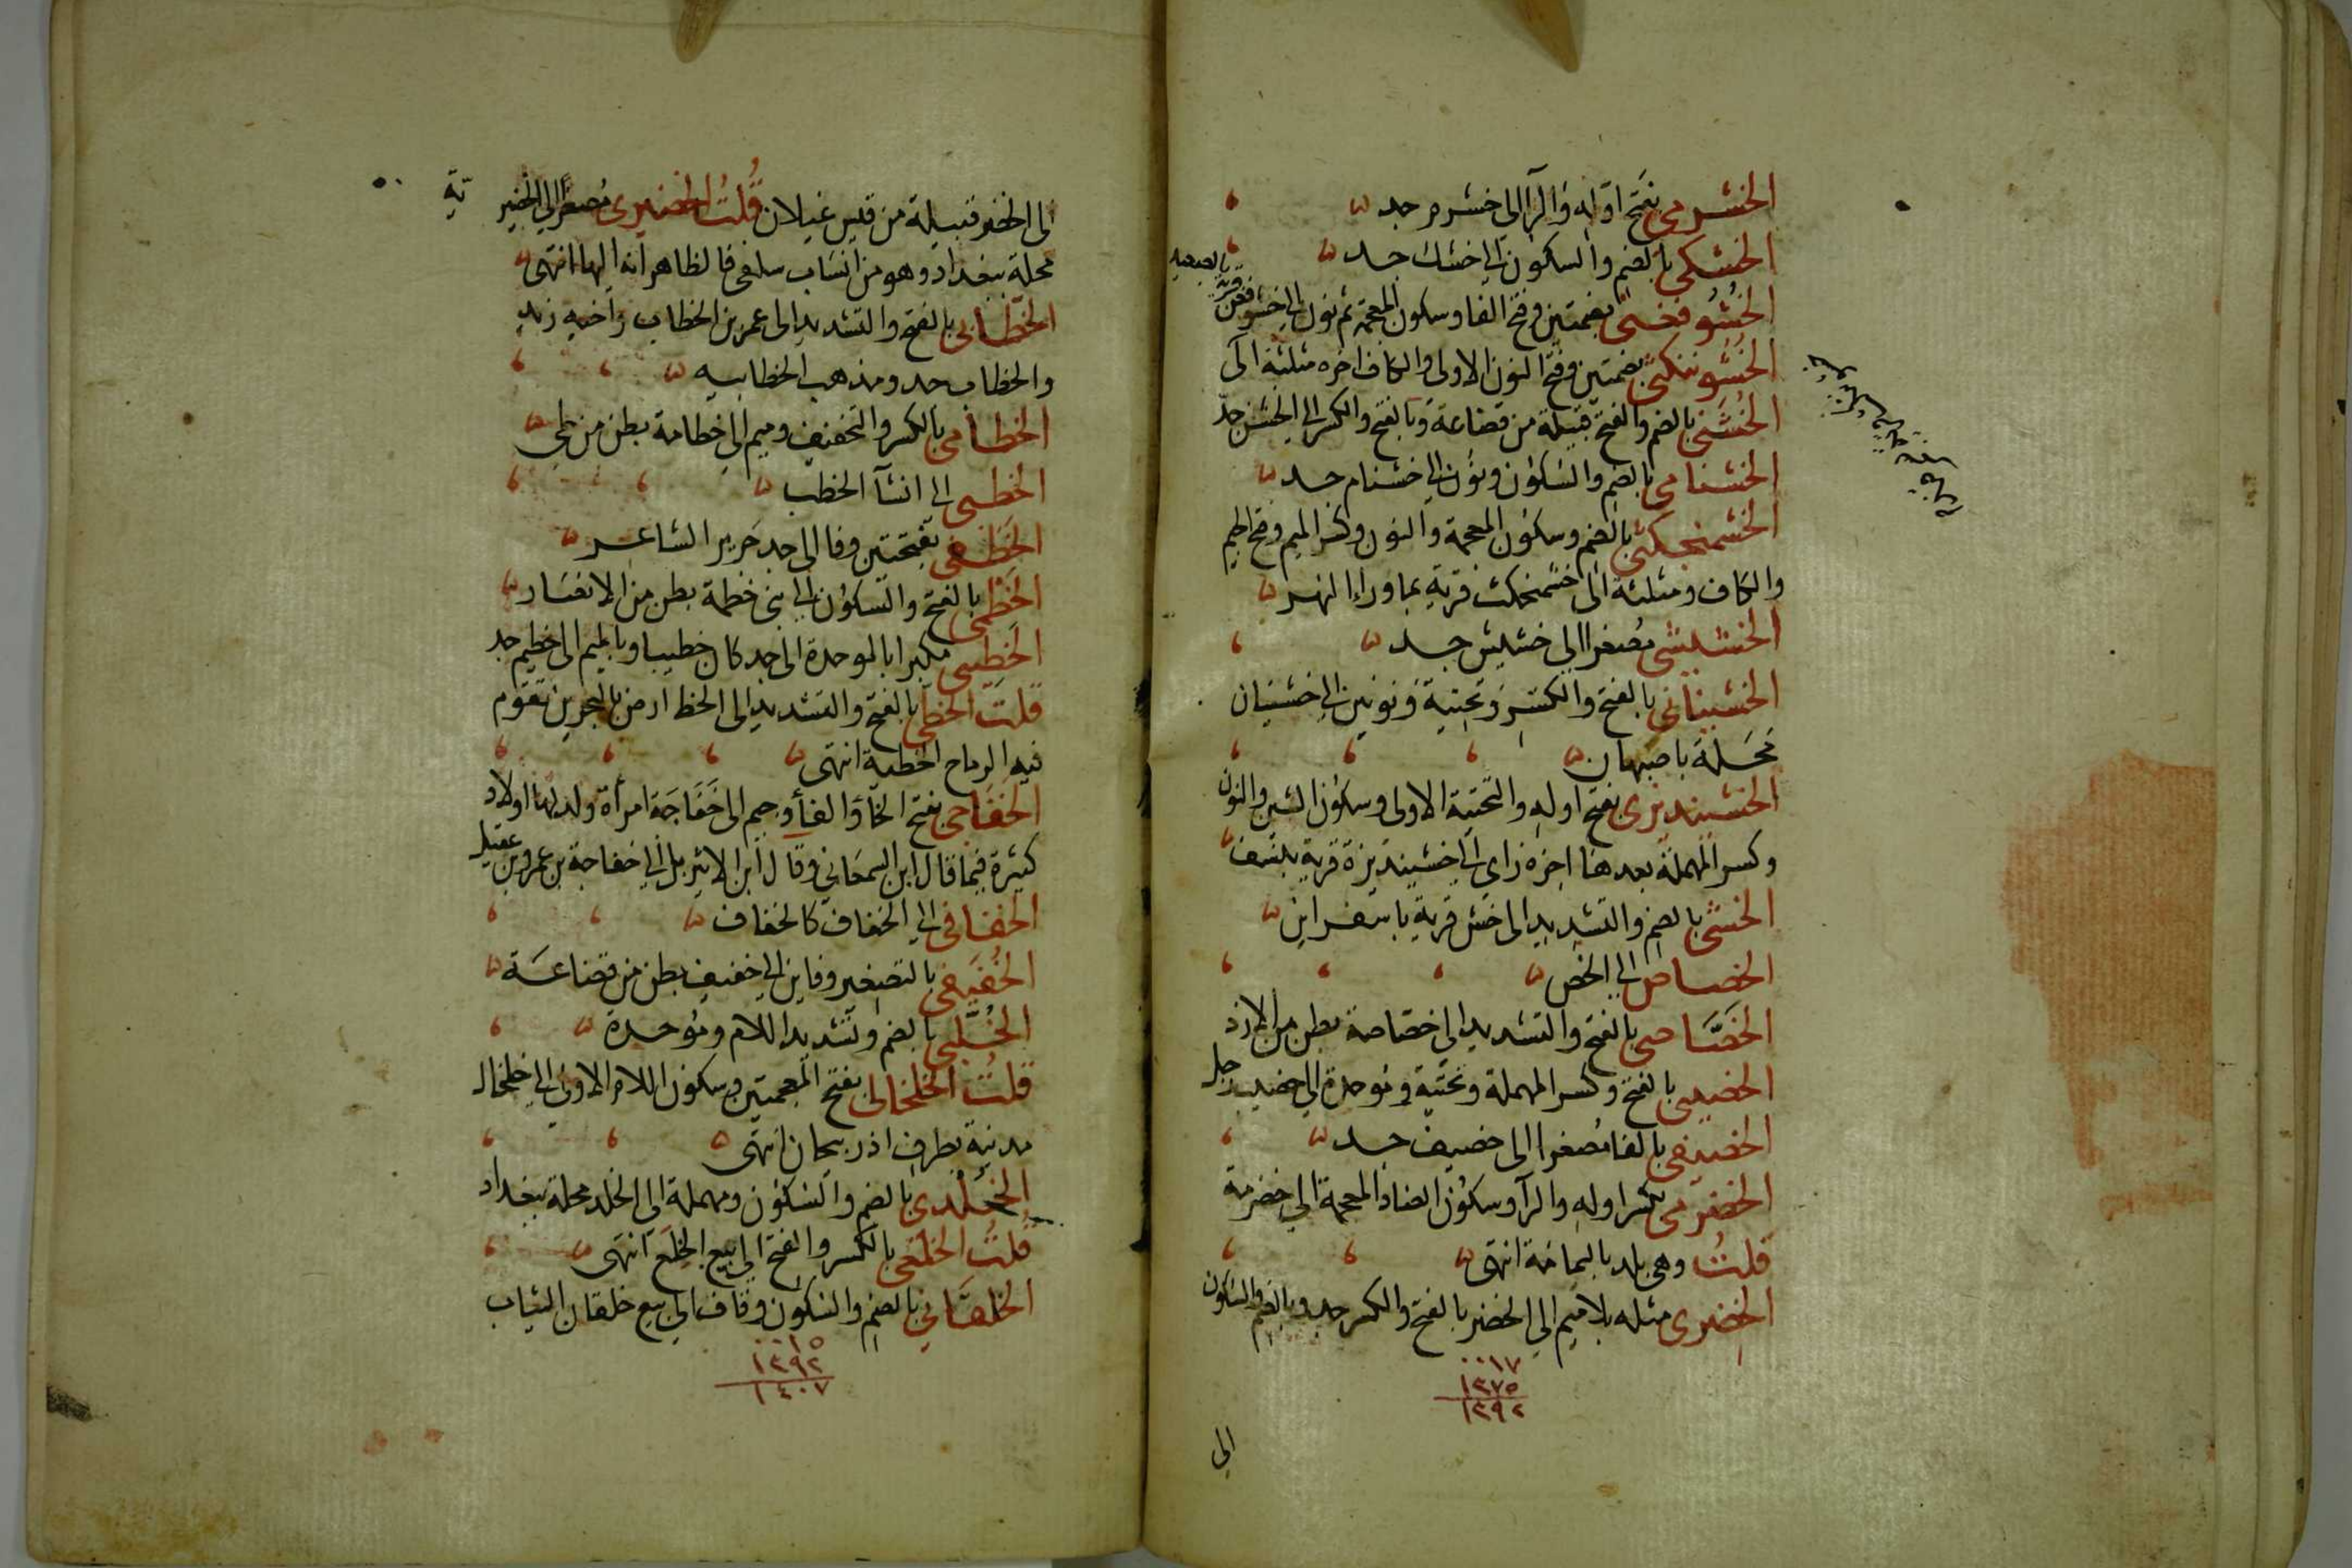 الخشرمي بفتح اوله والرا الى خشرم جد
الخشكي بالضم والسكون الى خشك جد
الخُشُوفغني بضمتين وفتح الفا وسكون المعجمة ثم نون الى خشوفغن قرية بالصغد
الخُشُوننكثي بضمتين وفتح النون الاولى والكاف اخره مثلثة الى
الخُشَني بالضم والفتح قبيلة من قضاعة وبالفتح والكسر الى الخشن جد
الخشنامي بالضم والسكون ونون الى خشنام جد
الخشمنجكثي بالضم وسكون المعجمة والنون وكسر الميم وفتح الجيم
والكاف ومثلثة الى خشمنجكث قرية بماورا النهر
الخشيشي مصغرا الى خشيش جد
الخشيناني بالفتح والكسر وتحتية ونونين الى خشينان
محلة باصبهان
الخشينديزى بفتح اوله والتحتية الاولى وسكون الشين والنون
وكسر المهملة بعدها اخره زاى الى خشينديزة قرية بنسف
الخشى بالضم والتشديد الى خش قرية باسفراين
الخصاص الى الخص
الخصَّاصى بالفتح والتشديد الى خصاصة بطن من الازد
الخصيبى بالفتح وكسر المهملة وتحتية وموحدة الى خصيب رجل
الخصيفى بالفا مصغرا الى خصيف جد
الخضرمى بكسر اوله والرا وسكون الضاد المعجمة الى خضرمة
قلتُ وهى بلد باليمامة انتهى
الخضرى مثله بلا ميم الى الخضر بالفتح والكسر جد وبالضم والسكون
٠٠١٧
١٣٧٥
١٣٩٢
الى
الى الخضر قبيلة من قيس غيلان قلتُ الخضيرى مصغرا الى الخضيرية
محلة ببغداد وهو من انساب سلفى فالظاهر انه اليها انتهى
الخطَّابى بالفتح والتشديد الى عمر بن الخطاب واخيه زيد
والخطاب جد ومذهب الخطابيه
الخطامى بالكسر والتخفيف وميم الى خطامة بطن من طى
الخطبى الى انشآ الخطب
الخَطَفى بفتحتين وفا الى جد جرير الشاعر
الخَطْمى بالفتح والسكون الى بنى خطمة بطن من الانصار
الخَطِيبى مكبرا بالموحدة الى جد كان خطيبا وبالميم الى خطيم جد
قلت الخطى بالفتح والتشديد الى الخط ارض بالبحرين تقوم
فيه الرماح الخطية انتهى
الخفاجى بفتح الخا والفا وجيم الى خفاجة امراة ولد لها اولاد
كثيرة فيما قال ابن السمعانى وقال ابن الاثير بل الى خفاجة بن عمرو بن عقيل
الخفافى الى الخفاف كالخفاف
الخُفَيفى بالتصغير وفاين الى خفيف بطن من قضاعة
الخُلَّبى بالضم وتشديد اللام وموحدة
قلتُ الخلخالى بفتح المعجمتين وسكون اللام الاولى الى خلخال
مدينة بطرف اذربيجان انتهى
الخُلدى بالضم والسكون ومهملة الى الخلد محلة ببغداد
قلتُ الخلعى بالكسر والفتح الى بيع الخِلَع انتهى
الخلقانى بالضم والسكون وقاف الى بيع خلقان الثياب
٠٠١٥
١٣٩٢
١٤٠٧